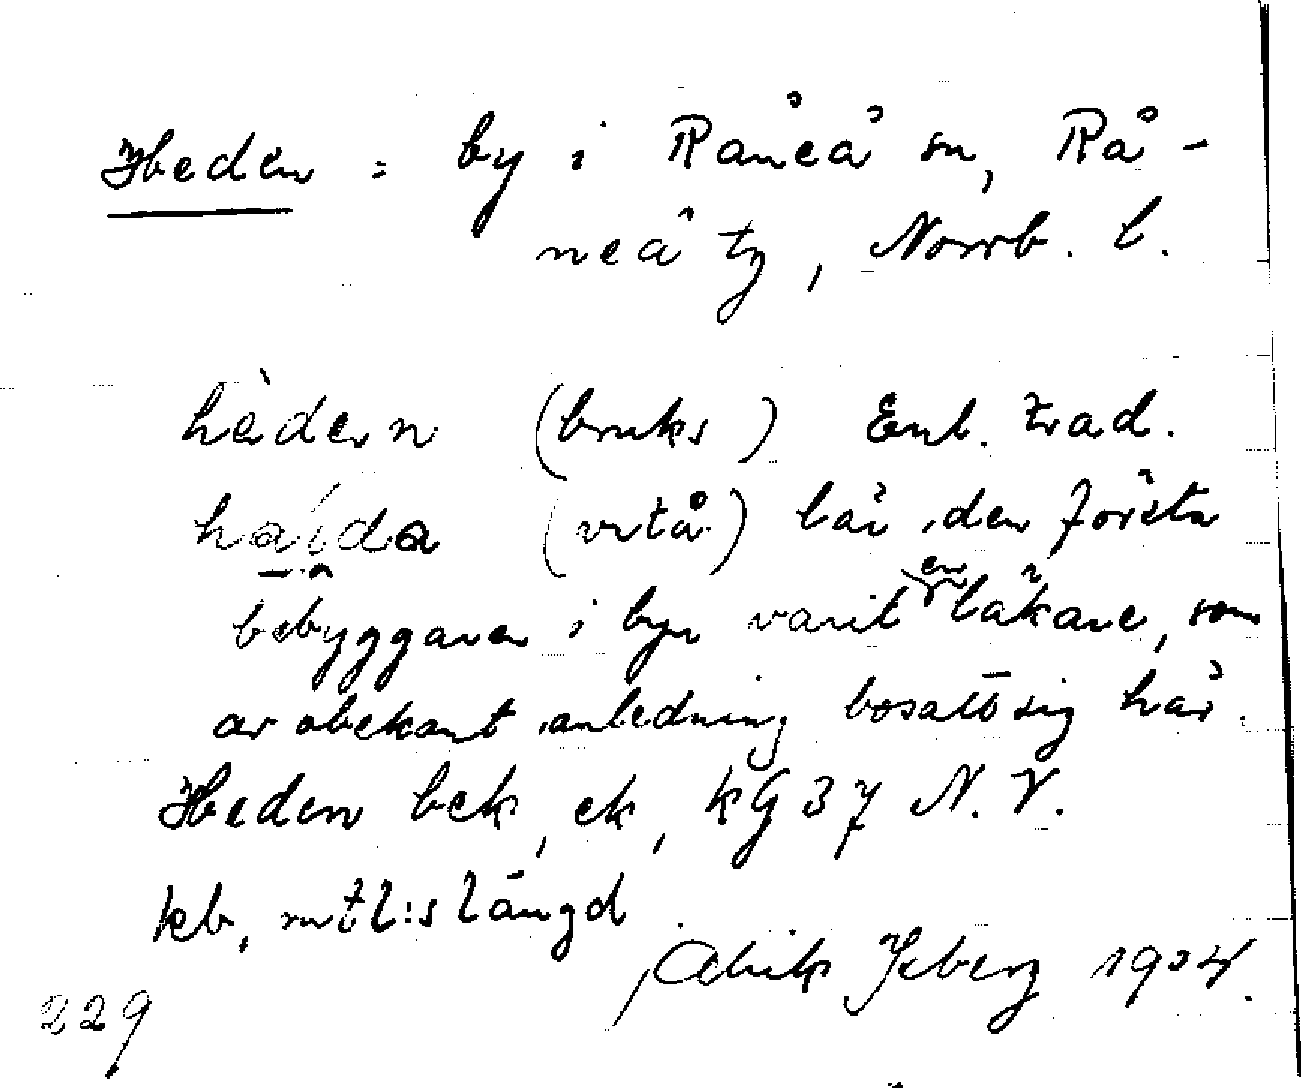 Heden = by i Råneå sn, Rå-
neå tg, Norrb. l.
hèden (bruks) Enl. trad.
haida (vitå) lär den första
bebyggaren i byn varit en läkare, som
av obekant anledning bosatt sig här.
Heden bek, ek, kG 37 N. V.
kb, mtl:s längd
Isberg 1924.
229